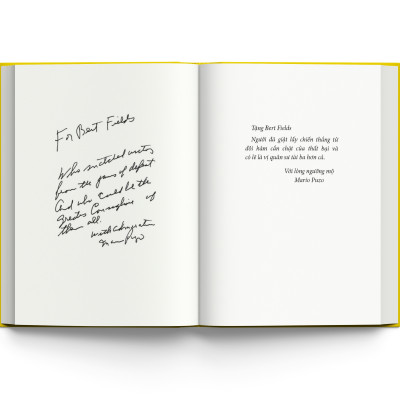 For Bert Fields
Who snatched victory
from the jaws of defeat.
And who could be the
greatest Consigliere of
them all.
with admiration
Mario Puzo
Tặng Bert Fields
Người đã giật lấy chiến thắng từ
đôi hàm cắn chặt của thất bại và
có lẽ là vị quân sư tài ba hơn cả.
Với lòng ngưỡng mộ
Mario Puzo